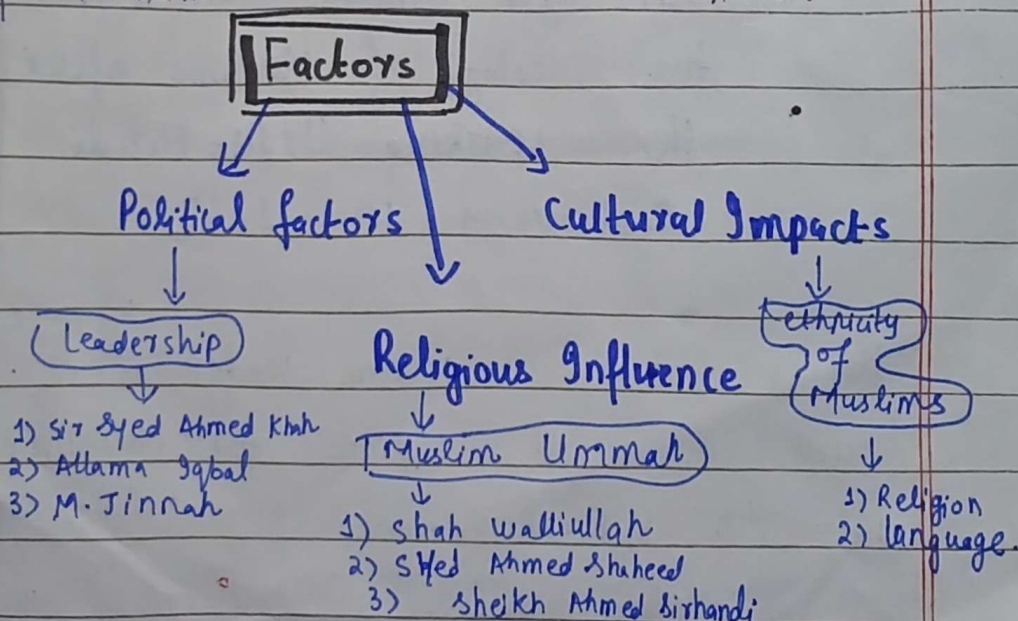 Factors
Political factors
Cultural Impacts
Leadership
1) Sir Syed Ahmed Khan
2) Allama Iqbal
3) M. Jinnah
Religious Influence
Muslim Ummah
1) Shah Walliullah
2) Syed Ahmed Shaheed
3) Sheikh Ahmed Sirhandi
ethnicity
of
Muslims
1) Religion
2) language.